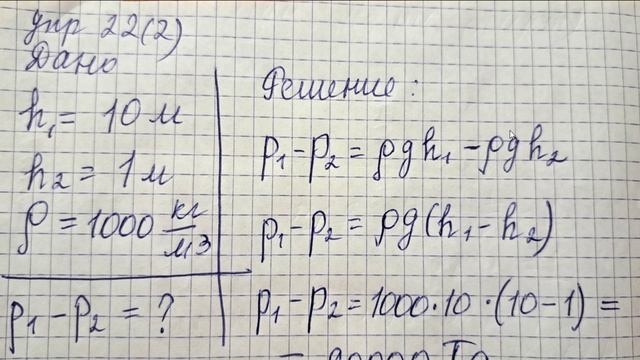 упр 22(2)
Дано
h₁ = 10 м
h₂ = 1 м
ρ = 1000 кг/м3
p₁ - p₂ = ?
Решение:
p₁ - p₂ = ρgh₁ - ρgh₂
p₁ - p₂ = ρg(h₁ - h₂)
p₁ - p₂ = 1000·10·(10-1) =